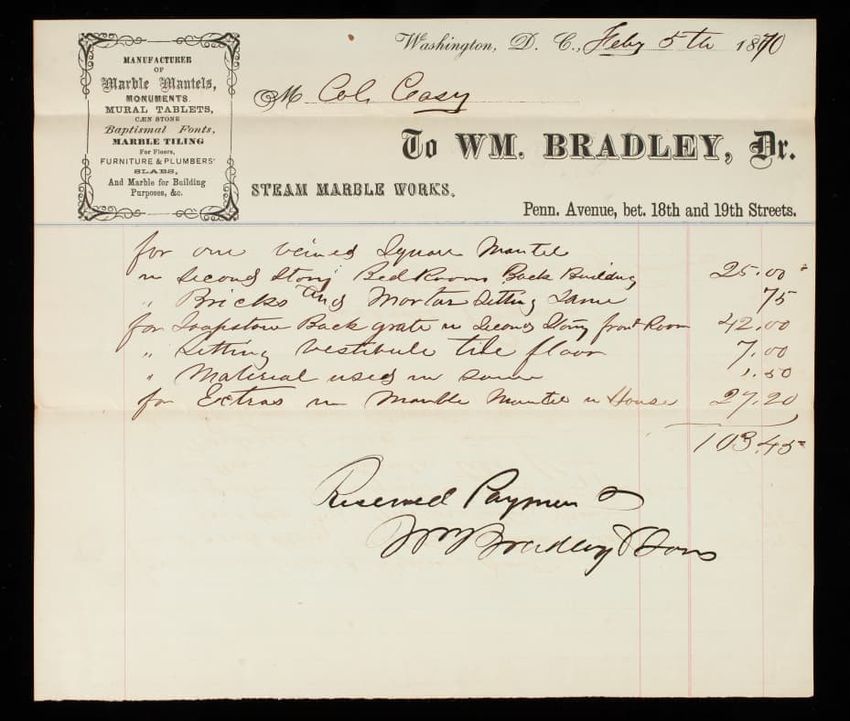 MANUFACTURER
OF
Marble Mantels,
MONUMENTS.
MURAL TABLETS,
CÆN STONE
Baptismal Fonts,
MARBLE TILING
For Floors,
FURNITURE & PLUMBERS'
SLABS,
And Marble for Building
Purposes, &c.
Washington, D. C., Feby 5th 1870
M Col. Casy
To WM. BRADLEY, Dr.
STEAM MARBLE WORKS,
Penn. Avenue, bet. 18th and 19th Streets.
for one veined Square Mantel
in Second Story Bed Room Back Building 25.00
" Bricks and Mortar Setting Same 75
for Soapstone Back grate in Second Story front Room 42.00
" Setting vestibule tile floor 7.00
" Material used in same 1.50
for Extras on Marble Mantels in House 27.20
103.45
Received Payment
Wm Bradley & Sons